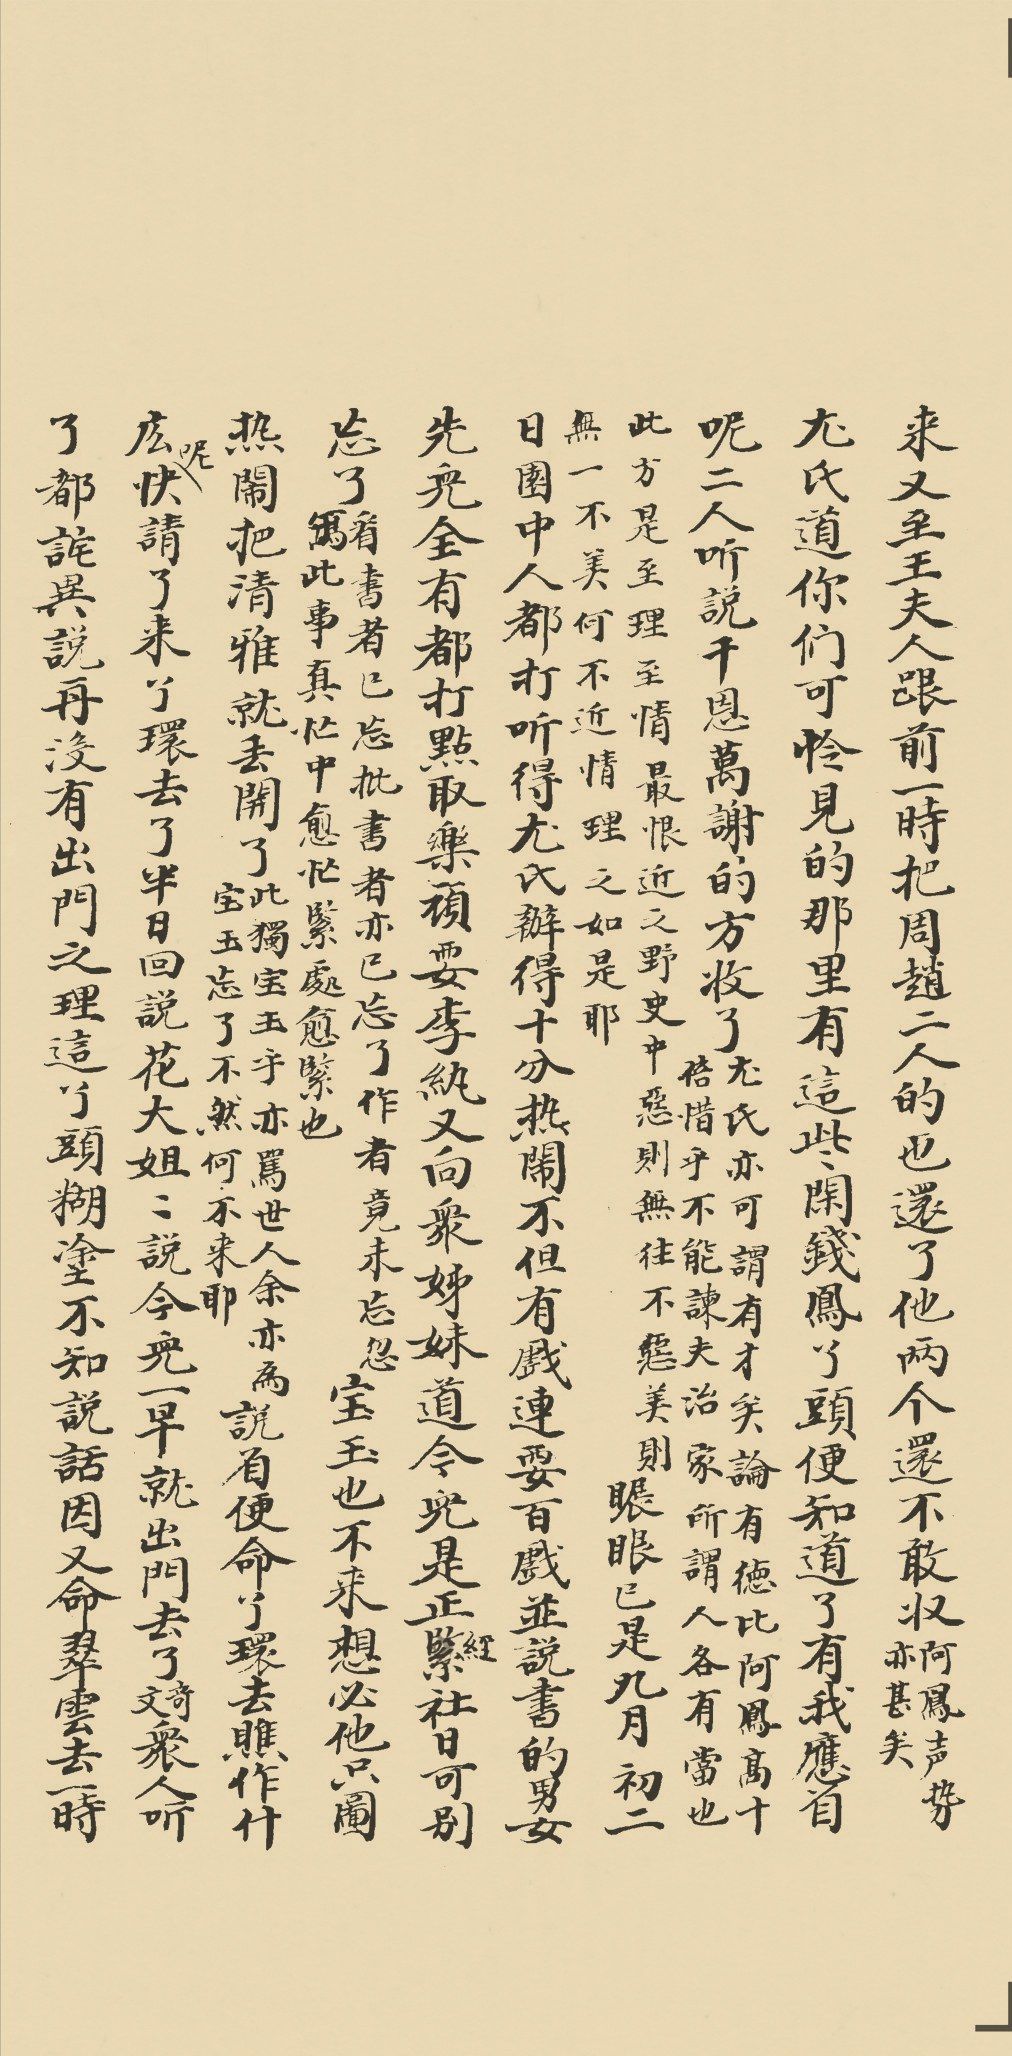 来又至王夫人跟前一時把周趙二人的也還了他两个還不敢収
阿鳳声势
亦甚矣
尤氏道你们可怜見的那里有這些閑錢鳳丫頭便知道了有我應着
呢二人听説千恩萬謝的方收了
尤氏亦可謂有才矣論有德比阿鳳高十
倍惜乎不能諫夫治家所謂人各有當也
此方是至理至情最恨近之野史中惡則無往不惡美則
無一不美何不近情理之如是耶
賬眼已是九月初二
日園中人都打听得尤氏辦得十分热鬧不但有戲連耍百戲並説書的男女
先兒全有都打點取樂頑耍李紈又向衆姊妹道今兒是正緊社日可别
經
忘了
看書者已忘批書者亦已忘了作者竟未忘忽
寫此事真忙中愈忙緊處愈緊也
宝玉也不来想必他只圖
热鬧把清雅就丢開了
此獨宝玉乎亦罵世人余亦為
宝玉忘了不然何不来耶
説着便命丫環去瞧作什
庅快請了来丫環去了半日回説花大姐〻説今兒一早就出門去了
呢
奇
文
衆人听
了都詫異説再没有出門之理這丫頭糊塗不知説話因又命翠雲去一時